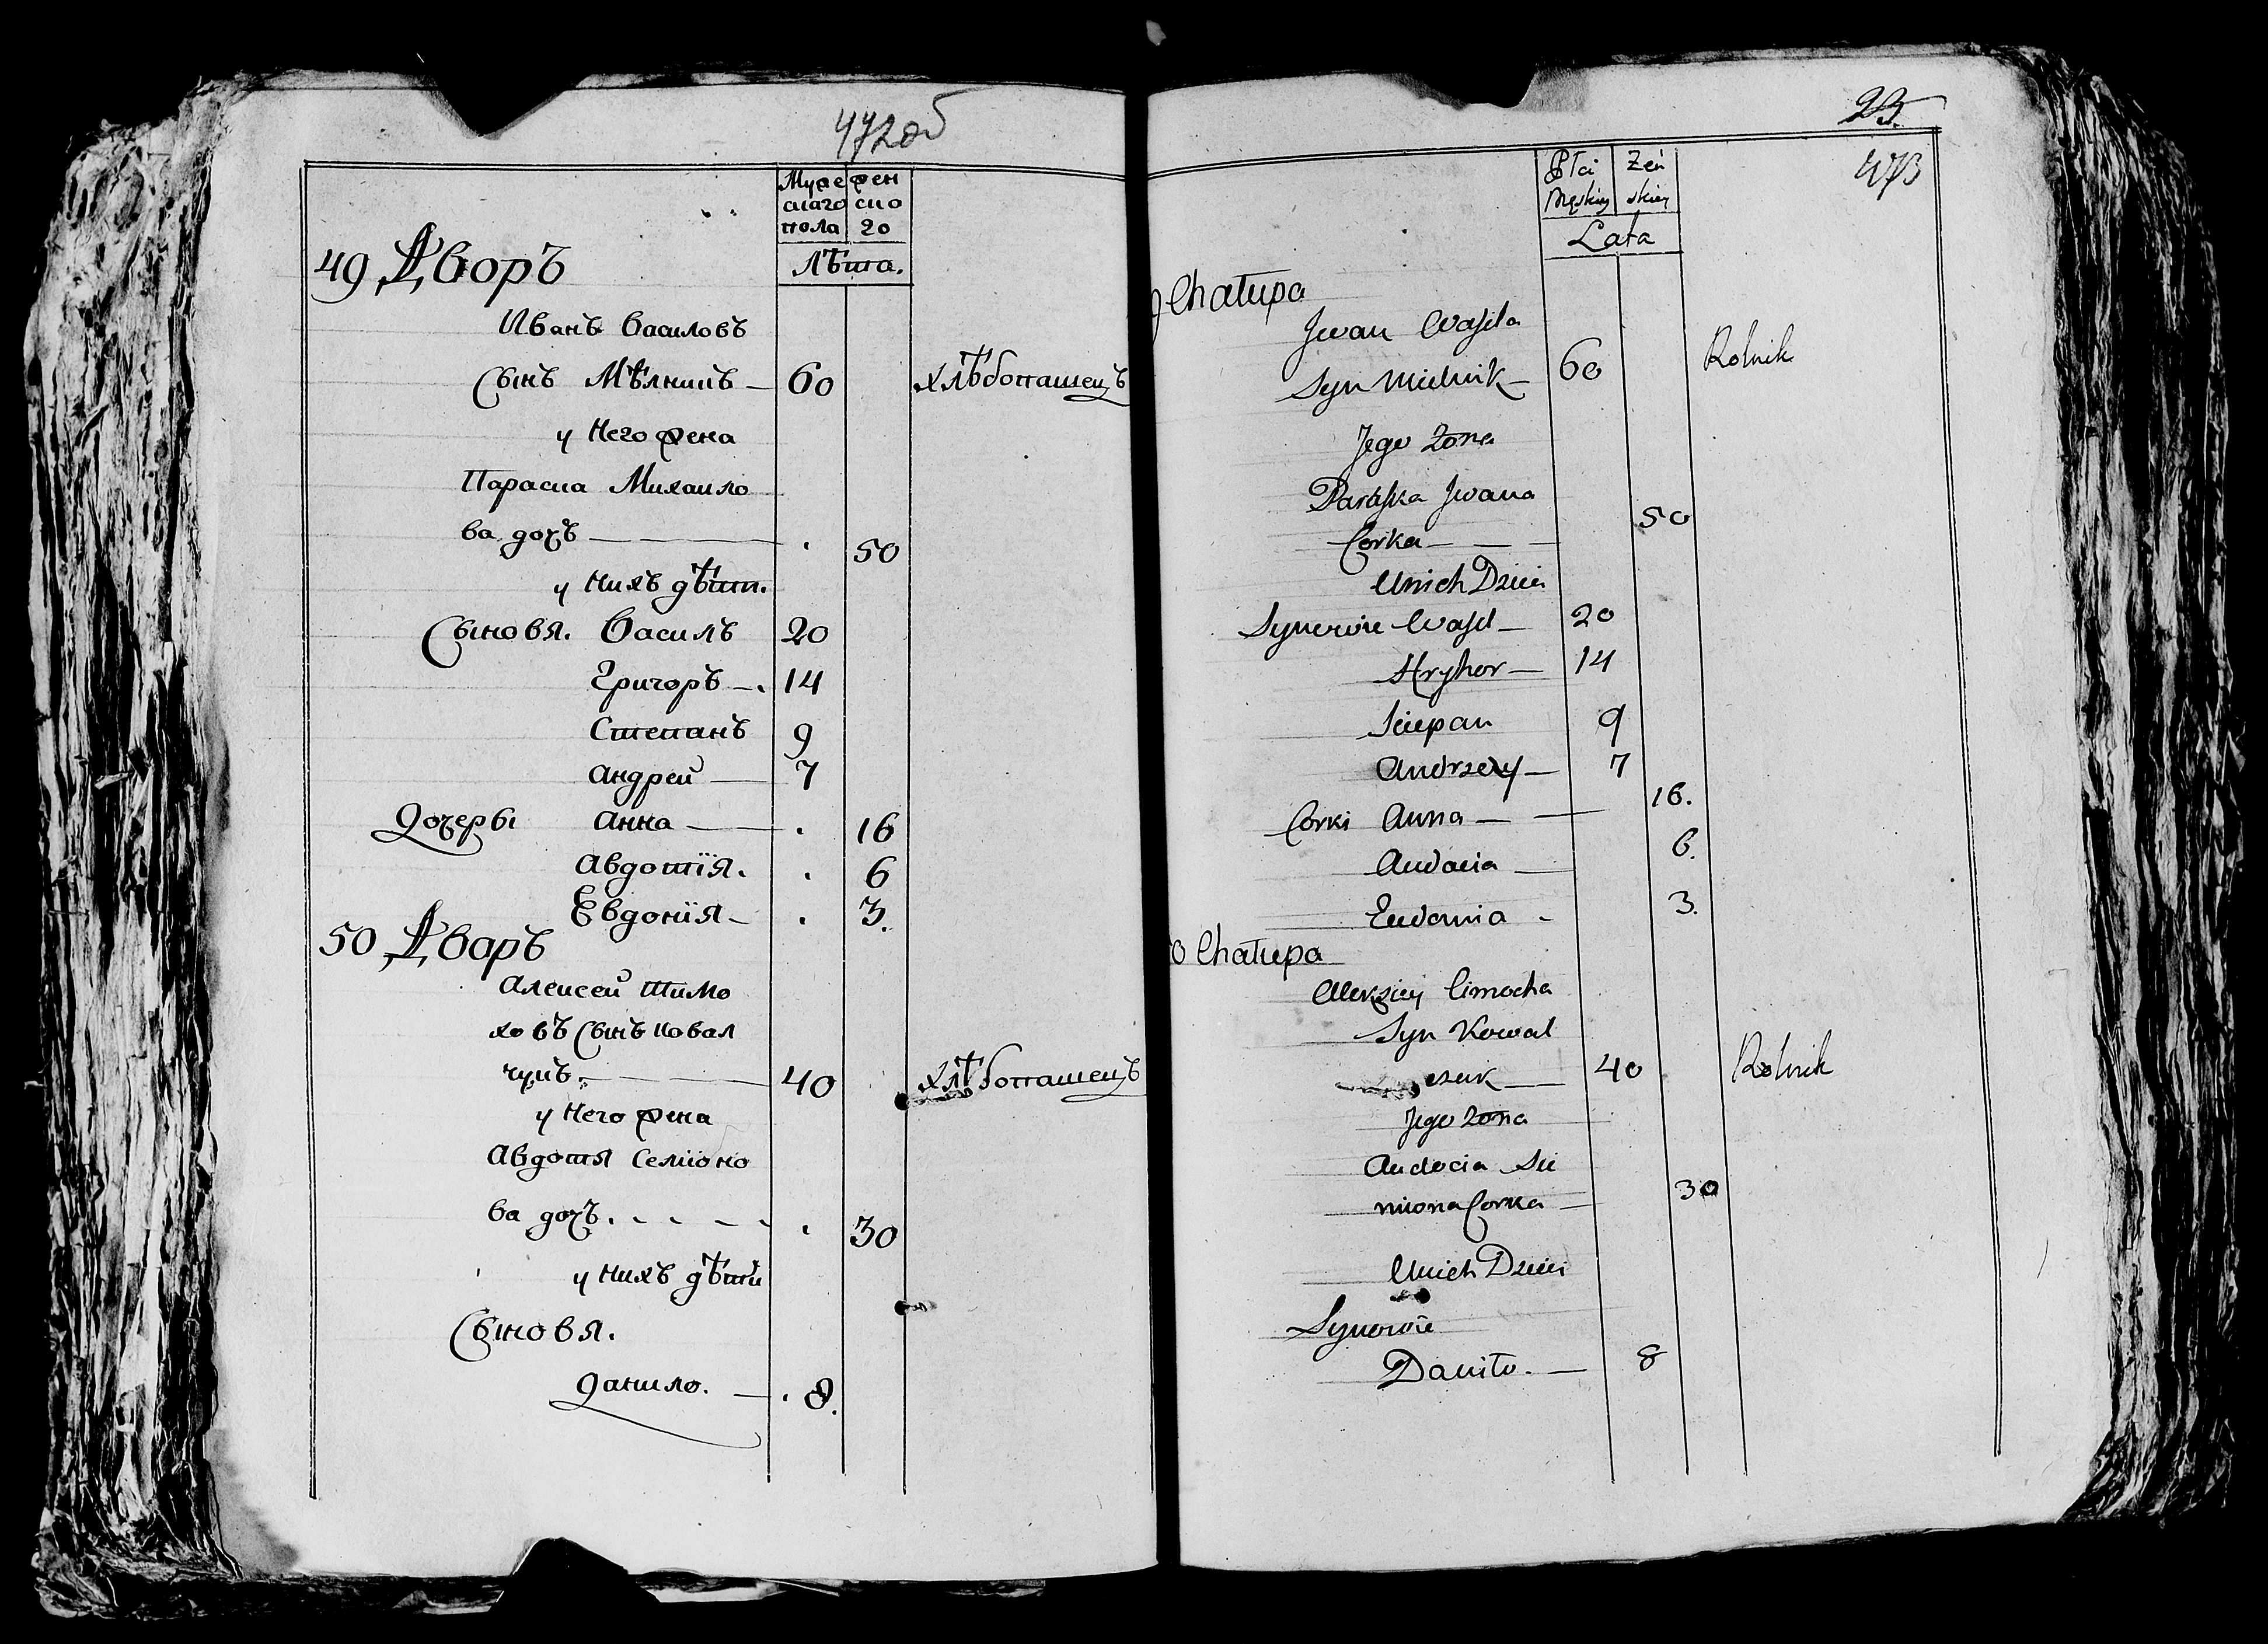 472об
Муже жен
скаго ско
пола го
Лѣта.
49 Дворъ
Иванъ Василовъ
Сынъ Мѣлникъ — 60 хлѣбопашецъ
у Него жена
Параска Михаило
ва дочъ — . 50
у Нихъ дѣти.
Сыновя. Василъ 20
Григоръ — . 14
Степанъ 9
Андрей — 7
Дочеры Анна — . 16
Авдотїя. . 6
Евдокїя — . 3.
50 Дворъ
Алексей Тимо
ховъ Сынъ Ковал
чукъ. — 40 хлѣбопашецъ
у Него жена
Авдотя Семїоно
ва дочъ . - - - - . 30
у Нихъ дѣти
Сыновя.
Данило. — . 8.
23.
473
Płci Żeń
Męskiey skiey
Lata
9 Chałupa
Jwan Wasila
Syn Mielnik — 60 Rolnik
Jego Żona
Paraska Jwana
Corka — — — 50
Unich Dzieci
Synowie Wasil — 20
Hryhor — 14
Sciepan 9
Andrzey — 7
Corki Anna — — 16.
Audocia — 6.
Eudokia - 3.
0 Chałupa
Alexiey Cimocha
Syn Kowal
czuk — 40 Rolnik
Jego Żona
Audocia Sie
miona Corka — 30
Unich Dzieci
Synowie
Daniło. — 8